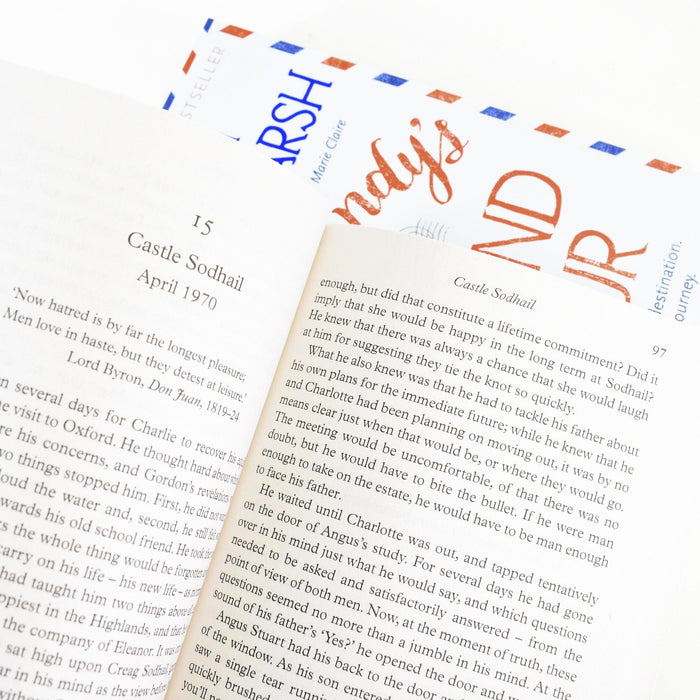 STSELLER
ARSH
Marie Claire
ndy's
ND
UR
destination.
ourney.
15
Castle Sodhail
April 1970
'Now hatred is by far the longest pleasure;
Men love in haste, but they detest at leisure.'
Lord Byron, Don Juan, 1819–24
n several days for Charlie to recover his
e visit to Oxford. He thought hard about
re his concerns, and Gordon's revelations
wo things stopped him. First, he did not
loud the water and, second, he still
wards his old school friend. He took
s the whole thing would be forgotten
carry on his life – his new life – as
had taught him two things above
ppiest in the Highlands, and that
the company of Eleanor. It was
sat high upon Creag Sodhail,
ar in his mind as the view before
Castle Sodhail
97
enough, but did that constitute a lifetime commitment? Did it
imply that she would be happy in the long term at Sodhail?
He knew that there was always a chance that she would laugh
at him for suggesting they tie the knot so quickly.
What he also knew was that he had to tackle his father about
his own plans for the immediate future; while he knew that he
and Charlotte had been planning on moving out, it was by no
means clear just when that would be, or where they would go.
The meeting would be uncomfortable, of that there was no
doubt, but he would have to bite the bullet. If he were man
enough to take on the estate, he would have to be man enough
to face his father.
He waited until Charlotte was out, and tapped tentatively
on the door of Angus's study. For several days he had gone
over in his mind just what he would say, and which questions
needed to be asked and satisfactorily answered – from the
point of view of both men. Now, at the moment of truth, these
questions seemed no more than a jumble in his mind. At the
sound of his father's 'Yes?' he opened the door and
Angus Stuart had his back to the door
of the window. As his son entered
saw a single tear
quickly brushed
you'll